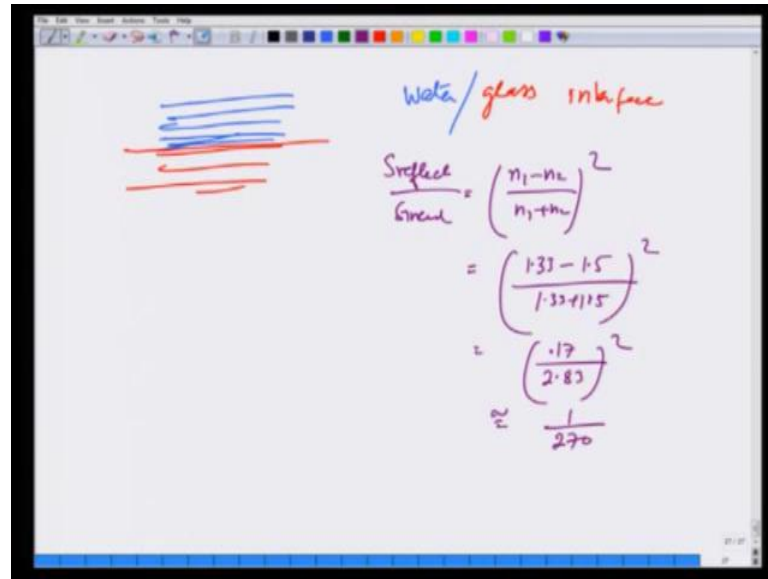 File Edit View Insert Actions Tools Help
water/glass interface
Sreflect / Sincid = (n₁-n₂ / n₁+n₂)²
= (1.33 - 1.5 / 1.33+1.5)²
= (.17 / 2.83)²
≅ 1 / 270
27 / 27
27